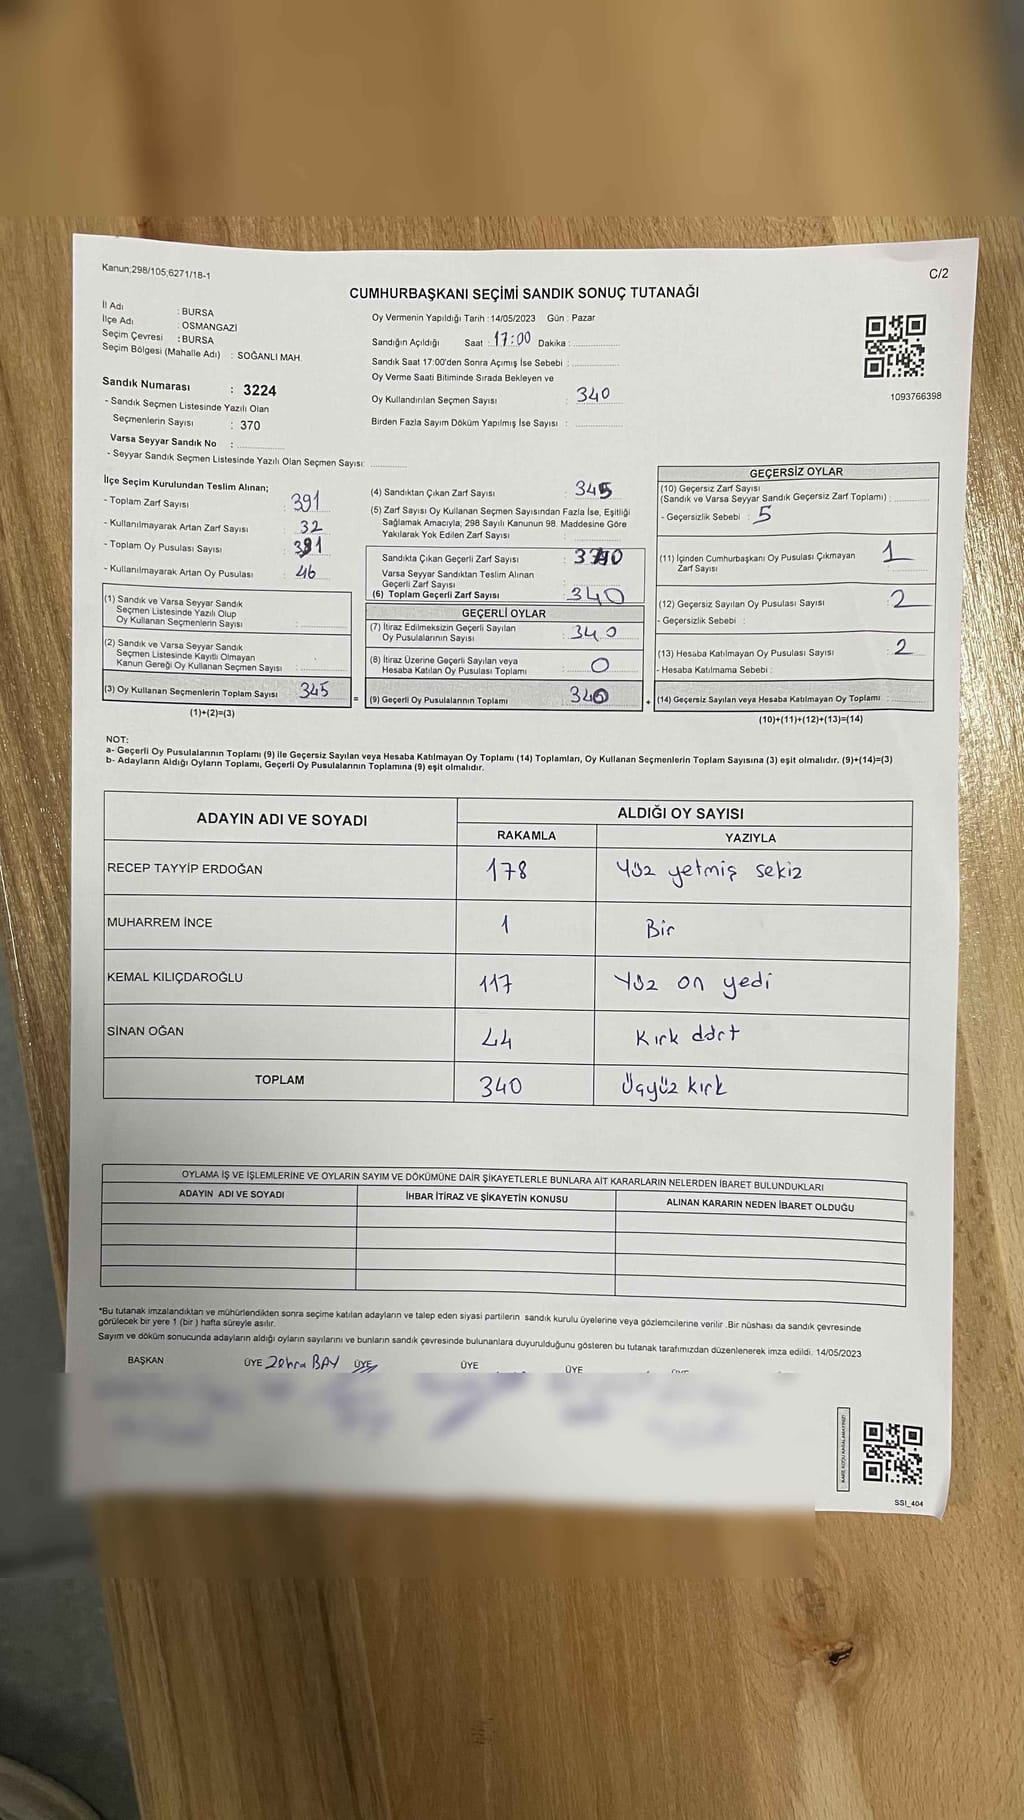 Kanun;298/105,6271/18-1
C/2
CUMHURBAŞKANI SEÇİMİ SANDIK SONUÇ TUTANAĞI
İl Adı : BURSA
İlçe Adı : OSMANGAZİ
Seçim Çevresi : BURSA
Seçim Bölgesi (Mahalle Adı) : SOĞANLI MAH.
Oy Vermenin Yapıldığı Tarih : 14/05/2023 Gün : Pazar
Sandığın Açıldığı Saat : 17:00 Dakika :
Sandık Saat 17:00'den Sonra Açımış İse Sebebi :
Oy Verme Saati Bitiminde Sırada Bekleyen ve
Oy Kullandırılan Seçmen Sayısı : 340
Birden Fazla Sayım Döküm Yapılmış İse Sayısı :
1093766398
Sandık Numarası : 3224
- Sandık Seçmen Listesinde Yazılı Olan
Seçmenlerin Sayısı : 370
Varsa Seyyar Sandık No :
- Seyyar Sandık Seçmen Listesinde Yazılı Olan Seçmen Sayısı:
İlçe Seçim Kurulundan Teslim Alınan;
- Toplam Zarf Sayısı : 391
- Kullanılmayarak Artan Zarf Sayısı : 32
- Toplam Oy Pusulası Sayısı : 391
- Kullanılmayarak Artan Oy Pusulası : 46
(1) Sandık ve Varsa Seyyar Sandık
Seçmen Listesinde Yazılı Olup
Oy Kullanan Seçmenlerin Sayısı :
(2) Sandık ve Varsa Seyyar Sandık
Seçmen Listesinde Kayıtlı Olmayan
Kanun Gereği Oy Kullanan Seçmen Sayısı :
(3) Oy Kullanan Seçmenlerin Toplam Sayısı : 345
(1)+(2)=(3)
(4) Sandıktan Çıkan Zarf Sayısı : 345
(5) Zarf Sayısı Oy Kullanan Seçmen Sayısından Fazla İse, Eşitliği
Sağlamak Amacıyla; 298 Sayılı Kanunun 98. Maddesine Göre
Yakılarak Yok Edilen Zarf Sayısı :
Sandıkta Çıkan Geçerli Zarf Sayısı :
Varsa Seyyar Sandıktan Teslim Alınan
Geçerli Zarf Sayısı :
(6) Toplam Geçerli Zarf Sayısı : 340
GEÇERLİ OYLAR
(7) İtiraz Edilmeksizin Geçerli Sayılan
Oy Pusulalarının Sayısı : 340
(8) İtiraz Üzerine Geçerli Sayılan veya
Hesaba Katılan Oy Pusulası Toplamı : 0
= (9) Geçerli Oy Pusulalarının Toplamı : 340
GEÇERSİZ OYLAR
(10) Geçersiz Zarf Sayısı
(Sandık ve Varsa Seyyar Sandık Geçersiz Zarf Toplamı) :
- Geçersizlik Sebebi : 5
(11) İçinden Cumhurbaşkanı Oy Pusulası Çıkmayan
Zarf Sayısı : 1
(12) Geçersiz Sayılan Oy Pusulası Sayısı : 2
- Geçersizlik Sebebi :
(13) Hesaba Katılmayan Oy Pusulası Sayısı : 2
- Hesaba Katılmama Sebebi :
+ (14) Geçersiz Sayılan veya Hesaba Katılmayan Oy Toplamı :
(10)+(11)+(12)+(13)=(14)
NOT:
a- Geçerli Oy Pusulalarının Toplamı (9) ile Geçersiz Sayılan veya Hesaba Katılmayan Oy Toplamı (14) Toplamları, Oy Kullanan Seçmenlerin Toplam Sayısına (3) eşit olmalıdır. (9)+(14)=(3)
b- Adayların Aldığı Oyların Toplamı, Geçerli Oy Pusulalarının Toplamına (9) eşit olmalıdır.
ADAYIN ADI VE SOYADI
ALDIĞI OY SAYISI
RAKAMLA YAZIYLA
RECEP TAYYİP ERDOĞAN 178 Yüz yetmiş sekiz
MUHARREM İNCE 1 Bir
KEMAL KILIÇDAROĞLU 117 Yüz on yedi
SİNAN OĞAN 44 Kırk dört
TOPLAM 340 Üçyüz kırk
OYLAMA İŞ VE İŞLEMLERİNE VE OYLARIN SAYIM VE DÖKÜMÜNE DAİR ŞİKAYETLERLE BUNLARA AİT KARARLARIN NELERDEN İBARET BULUNDUKLARI
ADAYIN ADI VE SOYADI İHBAR İTİRAZ VE ŞİKAYETİN KONUSU ALINAN KARARIN NEDEN İBARET OLDUĞU
*Bu tutanak imzalandıktan ve mühürlendikten sonra seçime katılan adayların ve talep eden siyasi partilerin sandık kurulu üyelerine veya gözlemcilerine verilir .Bir nüshası da sandık çevresinde
görülecek bir yere 1 (bir ) hafta süreyle asılır.
Sayım ve döküm sonucunda adayların aldığı oyların sayılarını ve bunların sandık çevresinde bulunanlara duyurulduğunu gösteren bu tutanak tarafımızdan düzenlenerek imza edildi. 14/05/2023
BAŞKAN ÜYE Zehra BAY ÜYE ÜYE ÜYE
SSI_404